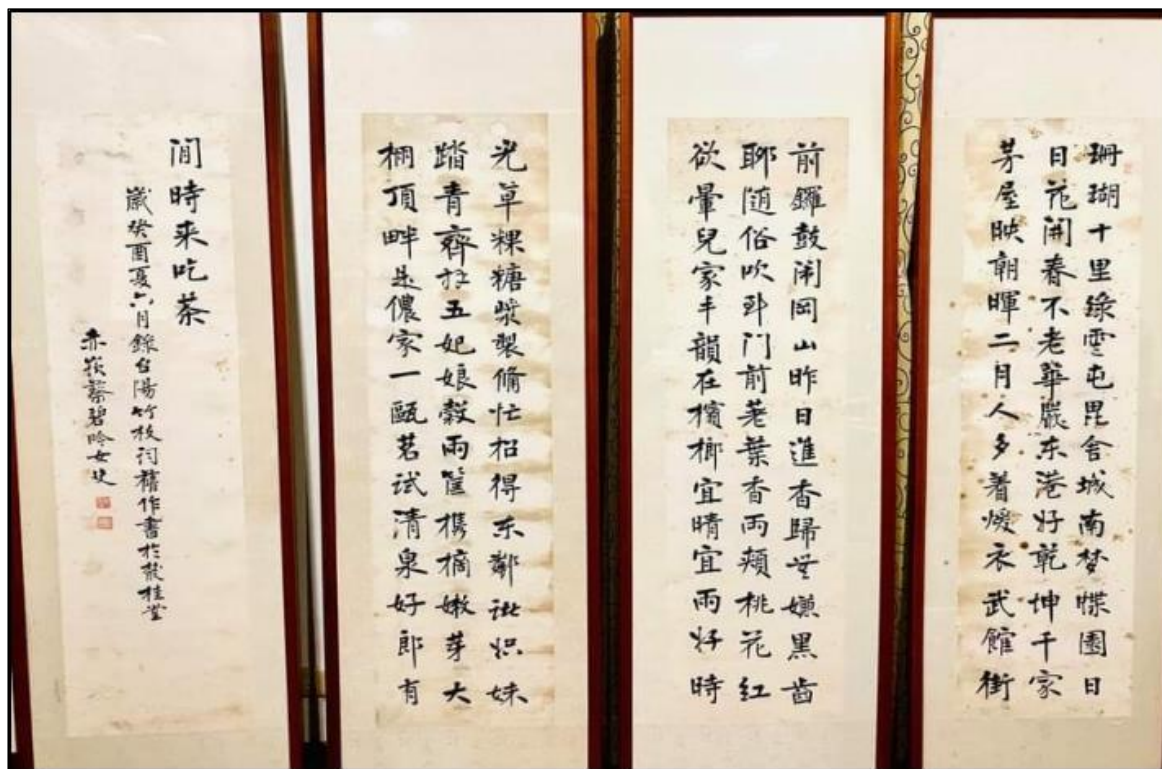 珊瑚十里綠雲屯毘舍城南梦惵園日
日花開春不老華嚴东港好乾坤千家
茅屋映朝暉二月人多着煖衣武館街
前鑼鼓闹岡山昨日進香歸無嫌黑齒
聊随俗吹卧门前荖葉香兩頰桃花红
欲暈兒家丰韻在檳榔宜晴宜雨好時
光草粿糖漿製俻忙招得东鄰諏炽妹
踏青齊拉五妃娘穀雨筐携摘嫩芽大
棚頂畔是儂家一甌茗试清泉好郎有
閒時来吃茶
歲癸酉夏六月錄台陽竹枝词舊作書於叢桂堂
赤崁蔡碧吟女史